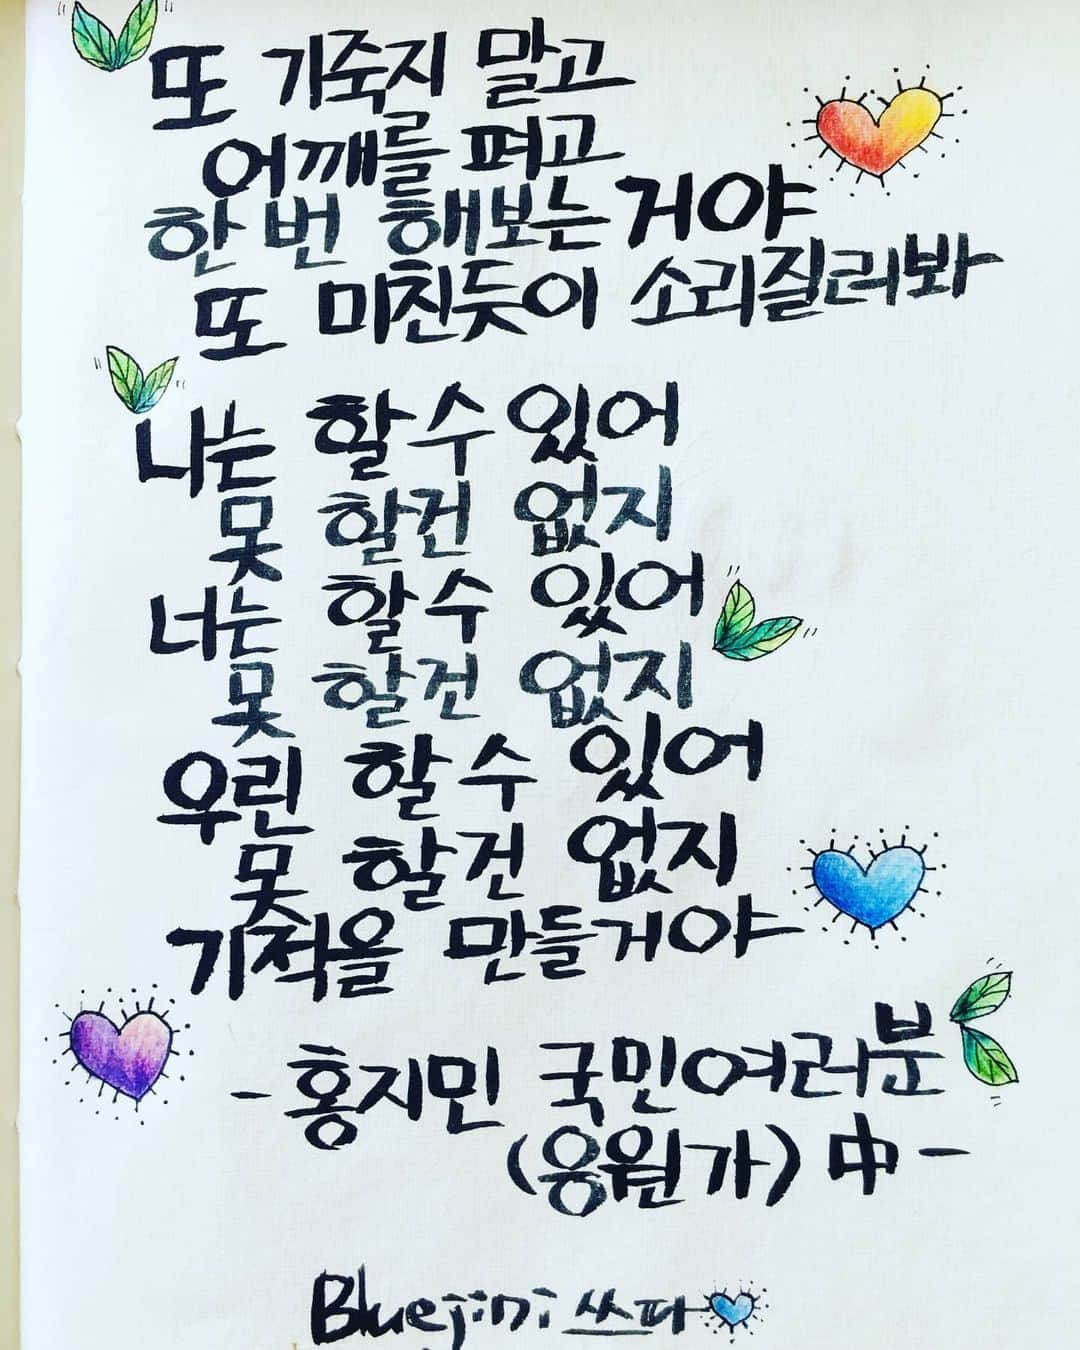 또 기죽지 말고
어깨를 펴고
한번 해보는 거야
또 미친듯이 소리질러봐
나는 할 수 있어
못 할건 없지
너는 할 수 있어
못 할건 없지
우린 할 수 있어
못 할건 없지
기적을 만들거야
- 홍지민 국민여러분
(응원가) 中 -
Bluejini 쓰다